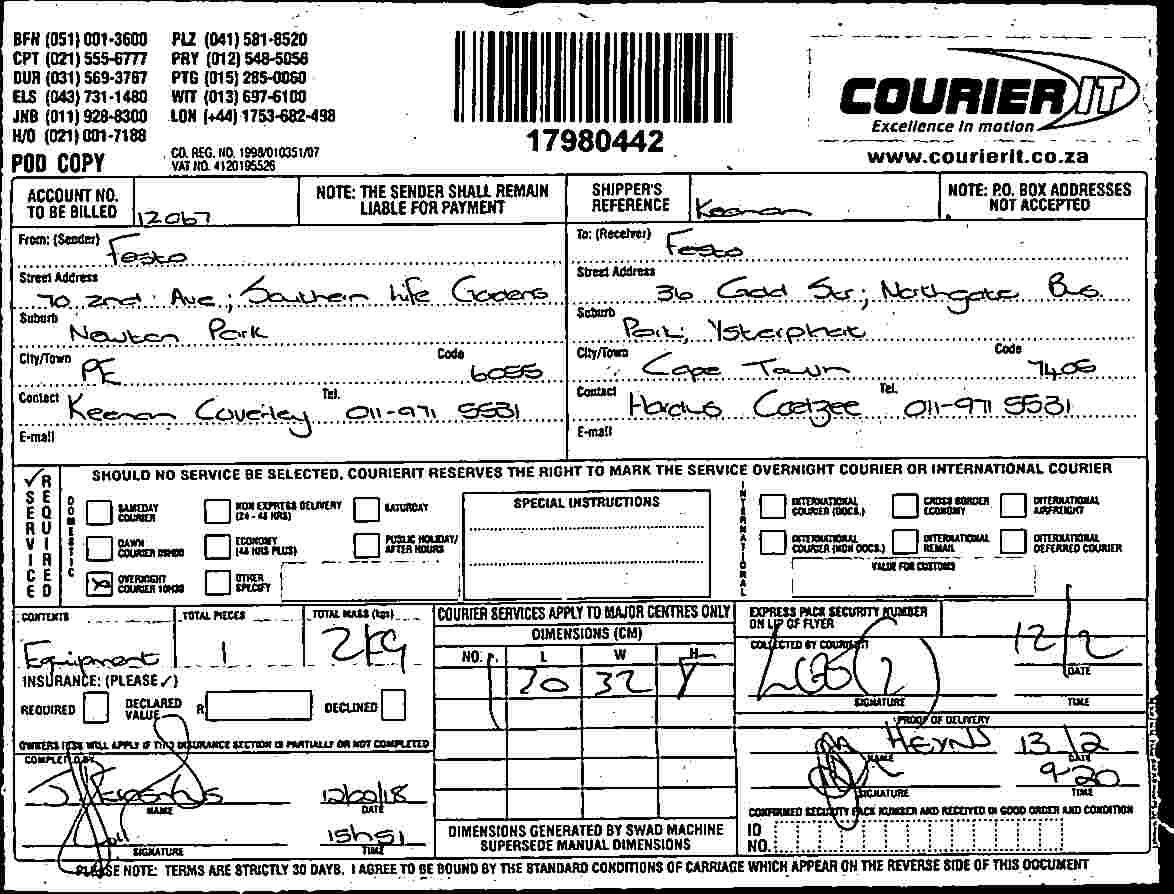 BFN (051) 001-3600 PLZ (041) 581-8520
CPT (021) 555-6777 PRY (012) 548-5056
DUR (031) 569-3767 PTG (015) 285-0060
ELS (043) 731-1480 WIT (013) 697-6100
JNB (011) 928-8300 LON (+44) 1753-682-498
H/O (021) 001-7188
POD COPY
CO. REG. NO. 1998/010351/07
VAT NO. 4120195526
17980442
COURIER IT
Excellence in motion
www.courierit.co.za
ACCOUNT NO. TO BE BILLED 12067
NOTE: THE SENDER SHALL REMAIN LIABLE FOR PAYMENT
SHIPPER'S REFERENCE Keenan
NOTE: P.O. BOX ADDRESSES NOT ACCEPTED
From: (Sender) Festo
Street Address 70 2nd Ave; Southern Life Gardens
Suburb Newton Park
City/Town PE Code 6055
Contact Keenan Coverley Tel. 011-971 5531
E-mail
To: (Receiver) Festo
Street Address 36 Gold Str; Northgate Bus.
Suburb Park; Ysterplaat
City/Town Cape Town Code 7405
Contact Hardus Coetzee Tel. 011-971 5531
E-mail
✓ SERVICE REQUIRED
SHOULD NO SERVICE BE SELECTED, COURIERIT RESERVES THE RIGHT TO MARK THE SERVICE OVERNIGHT COURIER OR INTERNATIONAL COURIER
DOMESTIC
SAMEDAY COURIER
NON EXPRESS DELIVERY (24 - 48 HRS)
SATURDAY
DAWN COURIER 09H00
ECONOMY (48 HRS PLUS)
PUBLIC HOLIDAY/ AFTER HOURS
OVERNIGHT COURIER 10H30
OTHER SPECIFY
SPECIAL INSTRUCTIONS
INTERNATIONAL
INTERNATIONAL COURIER (DOCS.)
CROSS BORDER ECONOMY
INTERNATIONAL AIRFREIGHT
INTERNATIONAL COURIER (NON DOCS.)
INTERNATIONAL REMAIL
INTERNATIONAL DEFERRED COURIER
VALUE FOR CUSTOMS
CONTENTS Equipment
TOTAL PIECES 1
TOTAL MASS (kgs) 2kg
INSURANCE: (PLEASE ✓)
REQUIRED DECLARED VALUE R DECLINED
OWNERS RISK WILL APPLY IF THIS INSURANCE SECTION IS PARTIALLY OR NOT COMPLETED
COMPLETED BY
NAME
DATE
15h51
SIGNATURE TIME
COURIER SERVICES APPLY TO MAJOR CENTRES ONLY
DIMENSIONS (CM)
NO. L W H
32
DIMENSIONS GENERATED BY SWAD MACHINE SUPERSEDE MANUAL DIMENSIONS
EXPRESS PACK SECURITY NUMBER ON LIP OF FLYER
COLLECTED BY COURIERIT
12/2
DATE
SIGNATURE TIME
PROOF OF DELIVERY
HEYNS 13/2
NAME DATE
9-20
SIGNATURE TIME
CONFIRMED SECURITY PACK NUMBER AND RECEIVED IN GOOD ORDER AND CONDITION
ID NO.
PLEASE NOTE: TERMS ARE STRICTLY 30 DAYS. I AGREE TO BE BOUND BY THE STANDARD CONDITIONS OF CARRIAGE WHICH APPEAR ON THE REVERSE SIDE OF THIS DOCUMENT